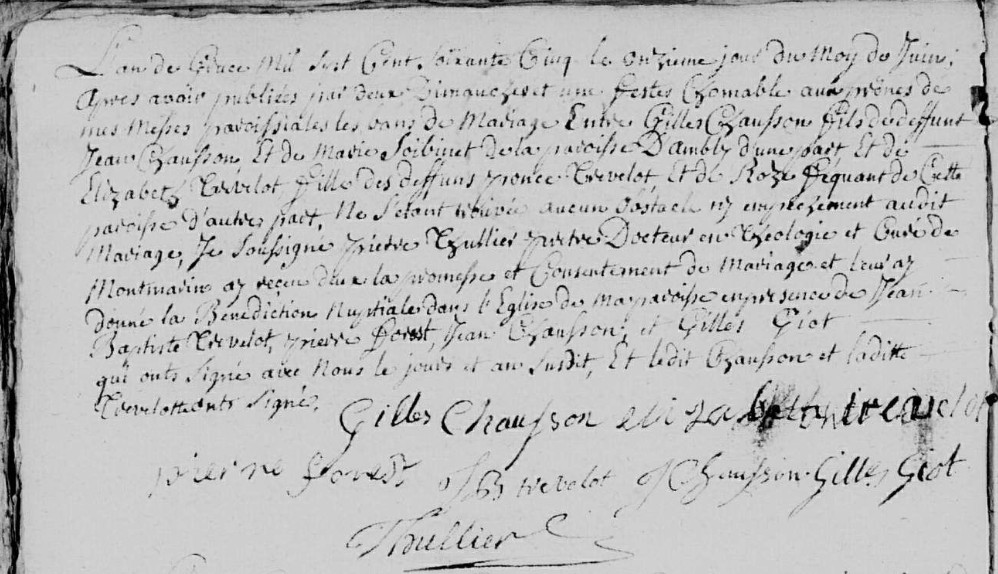 L'an de Grace Mil sept Cent soixante Cinq le onzieme jour du Moy de Juin,
apres avoir publiées par deux Dimanches et une festes chomable aux prônes de
mes Messes paroissiales les bans de Mariage Entre Gilles Chausson fils de deffunt
Jean Chausson Et de Marie Soibinet de la paroisse D'ambly d'une part Et de
Elizabeth Trevelot, fille des deffuns ponce Trevelot Et de Roze féquant de Cette
paroisse D'autre part, Ne s'etant trouvée aucun obstacle ny empechement audit
Mariage, Je soussigné pierre Thullier pretre Docteur en Theologie et Curé de
Montmarin ay reçeu deux la promesse et Consentement de Mariage et leur ay
donné la Benediction Nuptiale dans l'Eglise de Ma paroisse en presence de Jean
Baptiste Trevelot, pierre forest, Jean Chausson, et Gilles Giot
qui onts signé avec Nous le jour et an susdit, Et ledit Chausson et laditte
Trevelot onts signé.
Gilles Chausson elizabeth trevelot
pierre forest JB trevelot J Chausson Gilles Giot
Thullier